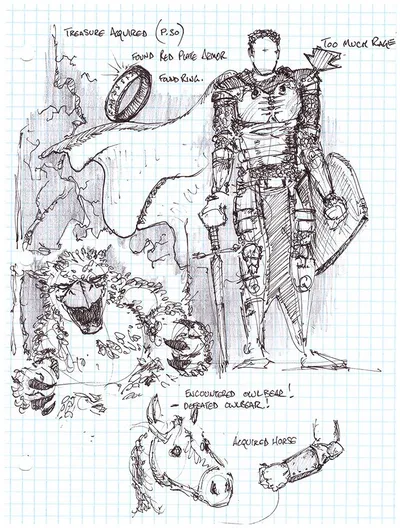 TREASURE ACQUIRED (P.30)
FOUND RED PLATE ARMOR
FOUND RING.
TOO MUCH RAGE
ENCOUNTERED OWLBEAR!
- DEFEATED OWLBEAR!
ACQUIRED HORSE